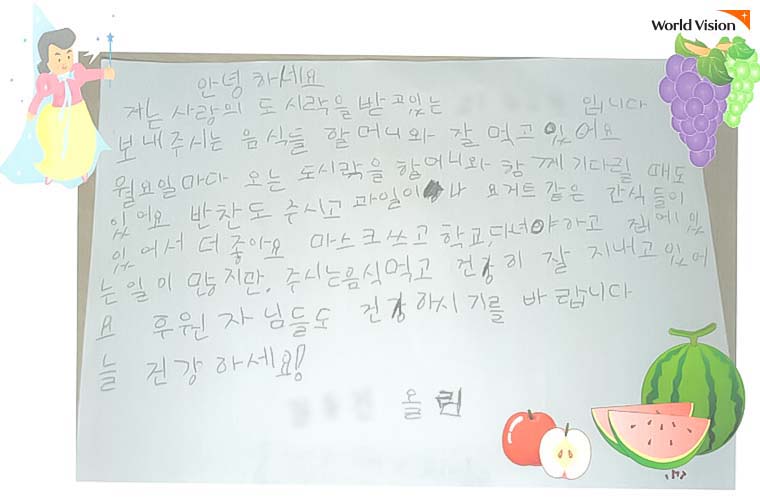 World Vision
안녕하세요
저는 사랑의 도시락을 받고있는 입니다
보내주시는 음식들 할머니와 잘 먹고 있어요
월요일마다 오는 도시락을 할머니와 함께 기다릴 때도
있어요 반찬도 주시고 과일이나 요거트같은 간식들이
있어서 더 좋아요 마스크쓰고 학교다녀야하고 집에있
는일이 많지만, 주시는음식먹고 건강히 잘 지내고있어
요 후원자님들도 건강하시기를 바랍니다
늘 건강하세요!
올림